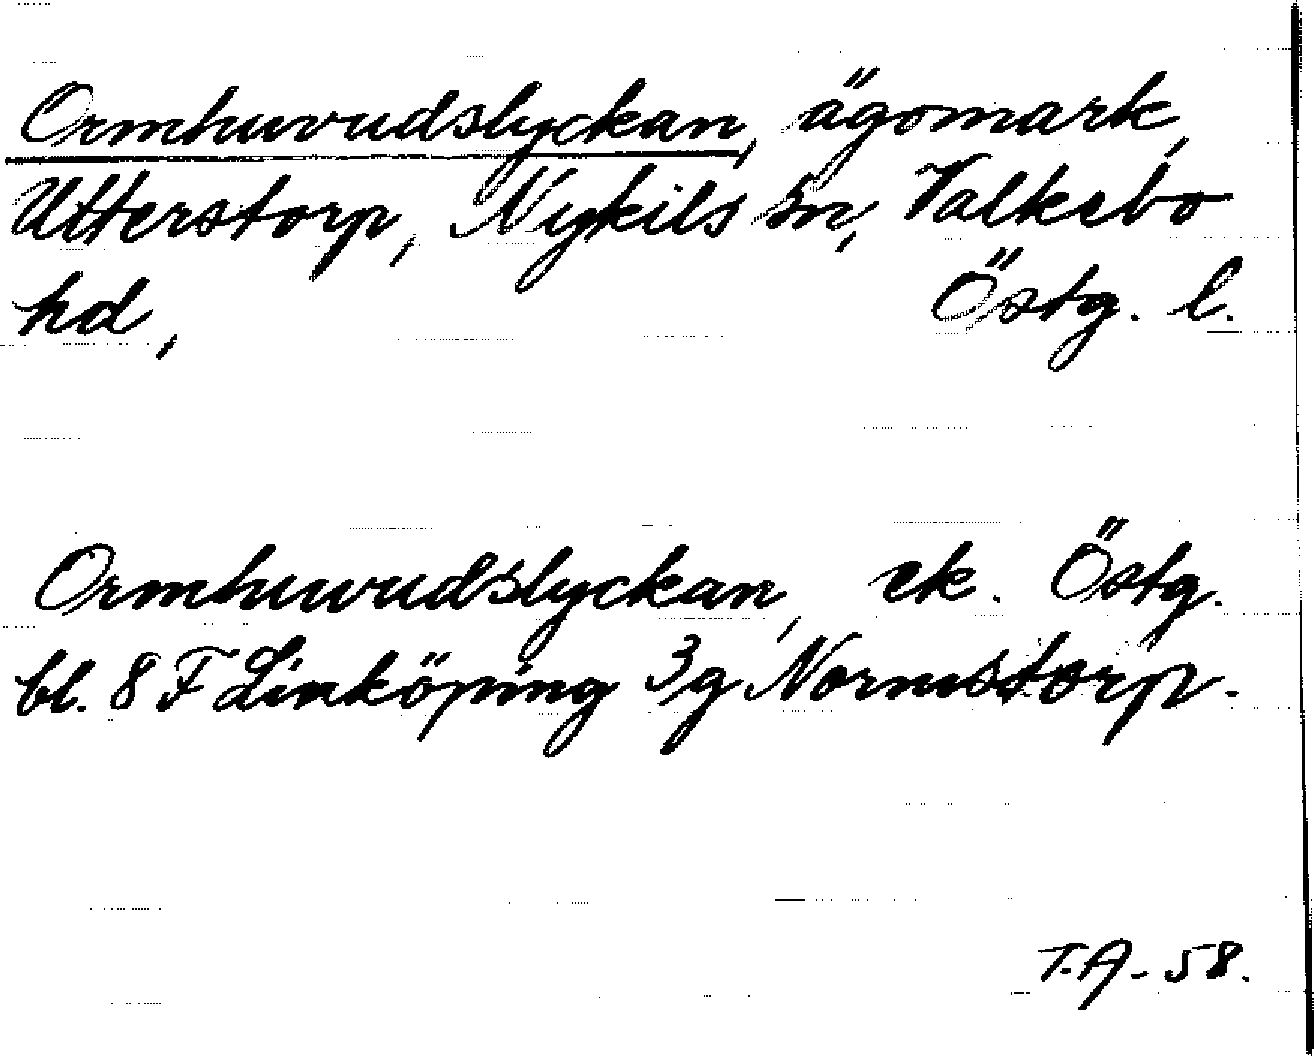 Ormhuvudslyckan, ägomark,
Utterstorp, Nykils sn, Valkebo
hd, Östg. l.
Ormhuvudslyckan, ek. Östg.
bl. 8 F Linköping 3g Normstorp.
T.A-58.